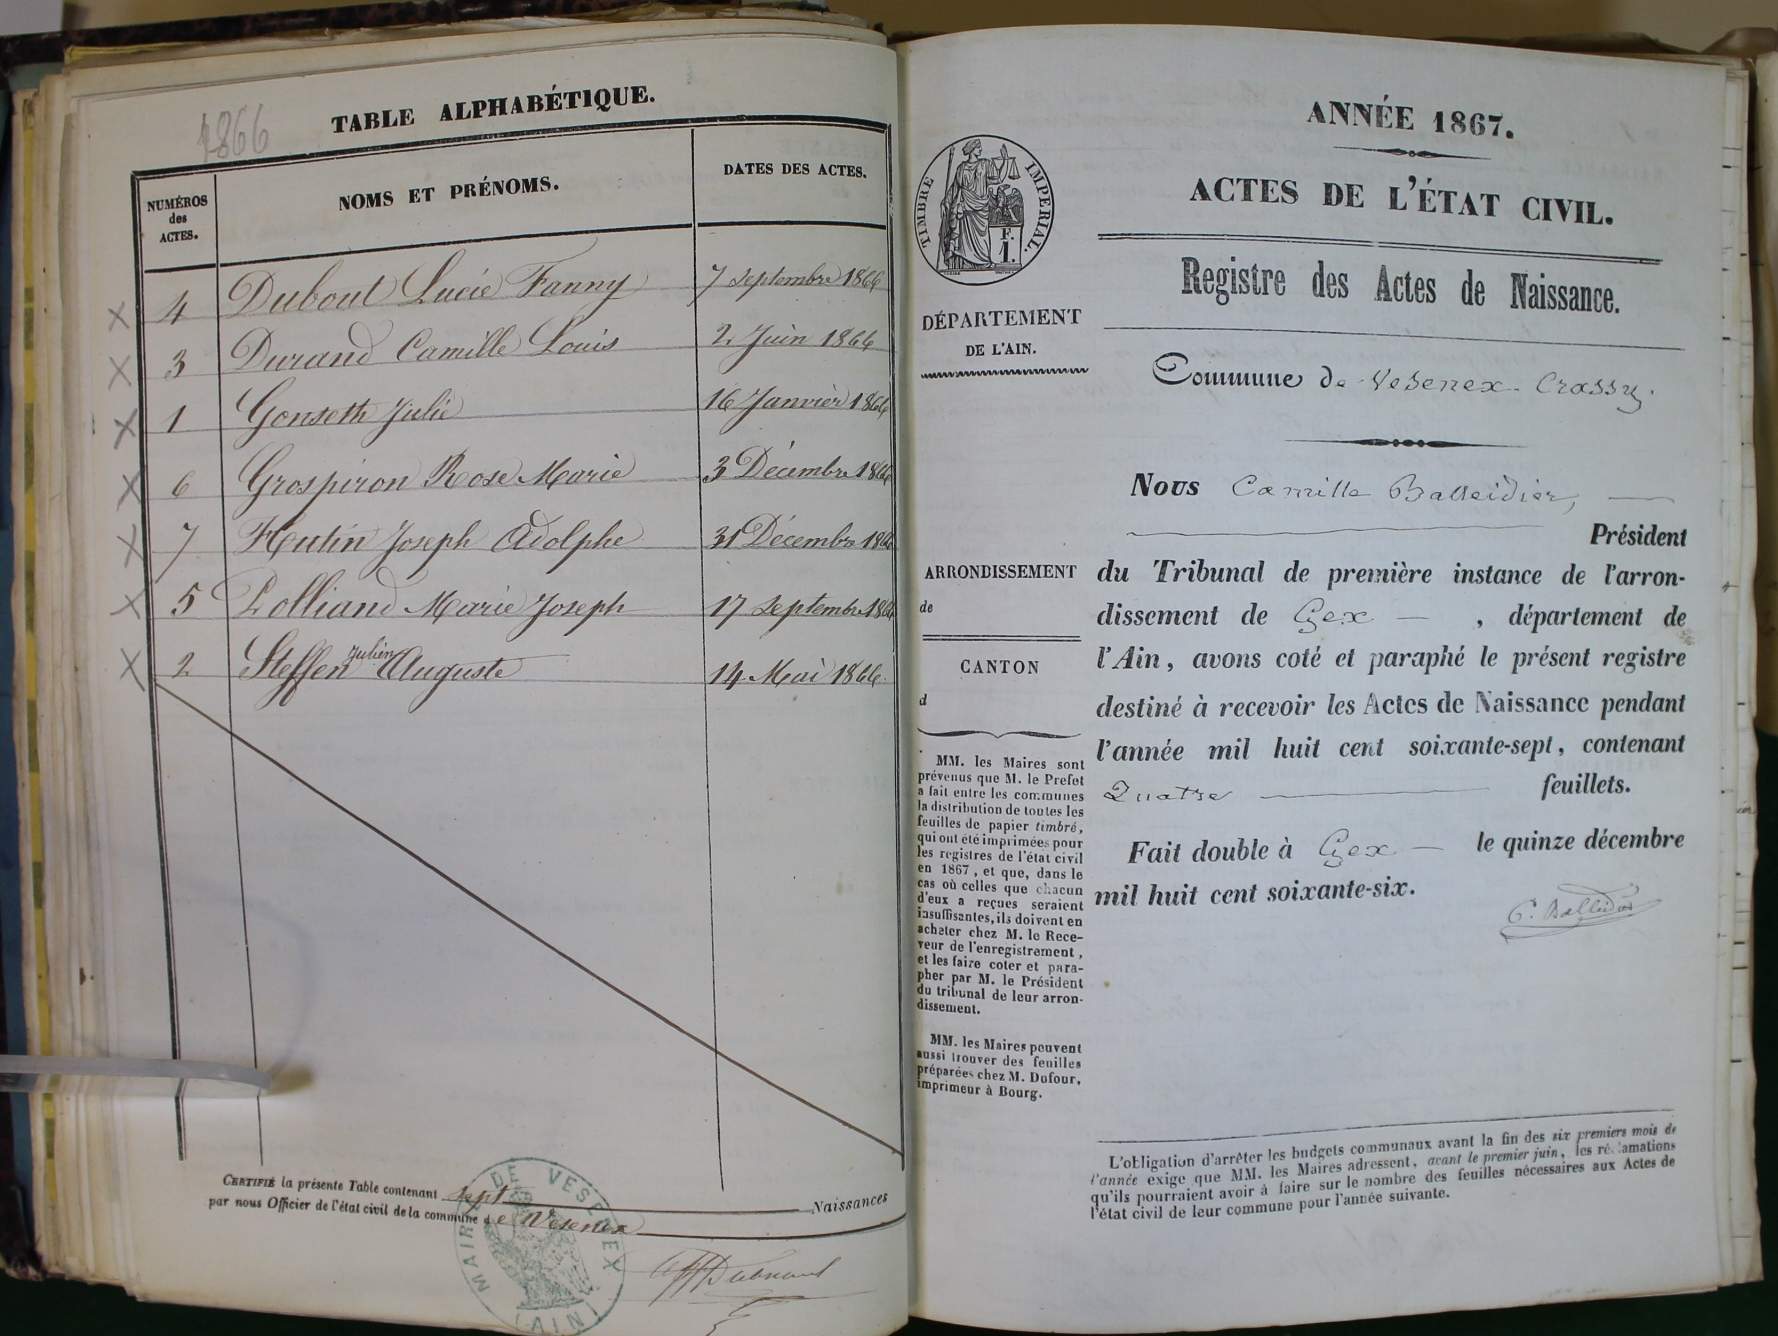 1866
TABLE ALPHABÉTIQUE.
NUMÉROS
des
ACTES.
NOMS ET PRÉNOMS.
DATES DES ACTES.
4 Dubout Lucie Fanny 7 Septembre 1866
3 Durand Camille Louis 2 Juin 1866
1 Gonseth Julie 16 Janvier 1866
6 Grospiron Rose Marie 3 Décembre 1866
7 Hutin Joseph Adolphe 31 Décembre 1866
5 Rolliand Marie Joseph 17 Septembre 1866
Julien
2 Steffen Auguste 14 Mai 1866
CERTIFIÉ la présente Table contenant sept Naissances
par nous Officier de l'état civil de la commune de Vesenex
MAIRIE DE VESENEX
(AIN)
ANNÉE 1867.
ACTES DE L'ÉTAT CIVIL.
Registre des Actes de Naissance.
TIMBRE IMPÉRIAL.
F.
1.
DÉPARTEMENT
DE L'AIN.
ARRONDISSEMENT
de
CANTON
d
MM. les Maires sont
prévenus que M. le Prefet
a fait entre les communes
la distribution de toutes les
feuilles de papier timbré,
qui ont été imprimées pour
les registres de l'état civil
en 1867, et que, dans le
cas où celles que chacun
d'eux a reçues seraient
insuffisantes, ils doivent en
acheter chez M. le Rece-
veur de l'enregistrement,
et les faire coter et para-
pher par M. le Président
du tribunal de leur arron-
dissement.
MM. les Maires peuvent
aussi trouver des feuilles
préparées chez M. Dufour,
imprimeur à Bourg.
Commune de Vesenex-Crassy.
Nous Camille Balleidier,
Président
du Tribunal de première instance de l'arron-
dissement de Gex , département de
l'Ain, avons coté et paraphé le présent registre
destiné à recevoir les Actes de Naissance pendant
l'année mil huit cent soixante-sept, contenant
Quatre feuillets.
Fait double à Gex le quinze décembre
mil huit cent soixante-six.
C. Balleidier
L'obligation d'arrêter les budgets communaux avant la fin des six premiers mois de
l'année exige que MM. les Maires adressent, avant le premier juin, les réclamations
qu'ils pourraient avoir à faire sur le nombre des feuilles nécessaires aux Actes de
l'état civil de leur commune pour l'année suivante.